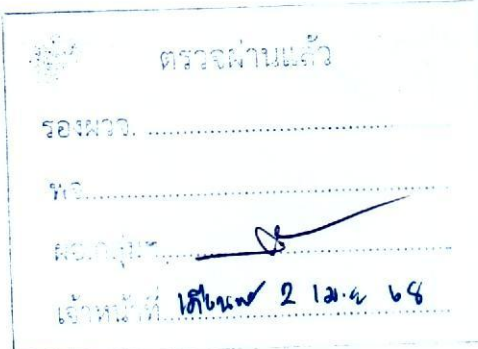 ตรวจผ่านแล้ว
รองผวจ. ..............................
พจ..............................
ผอ.กลุ่มฯ..............................
เจ้าหน้าที่ 2 เม.ย 68